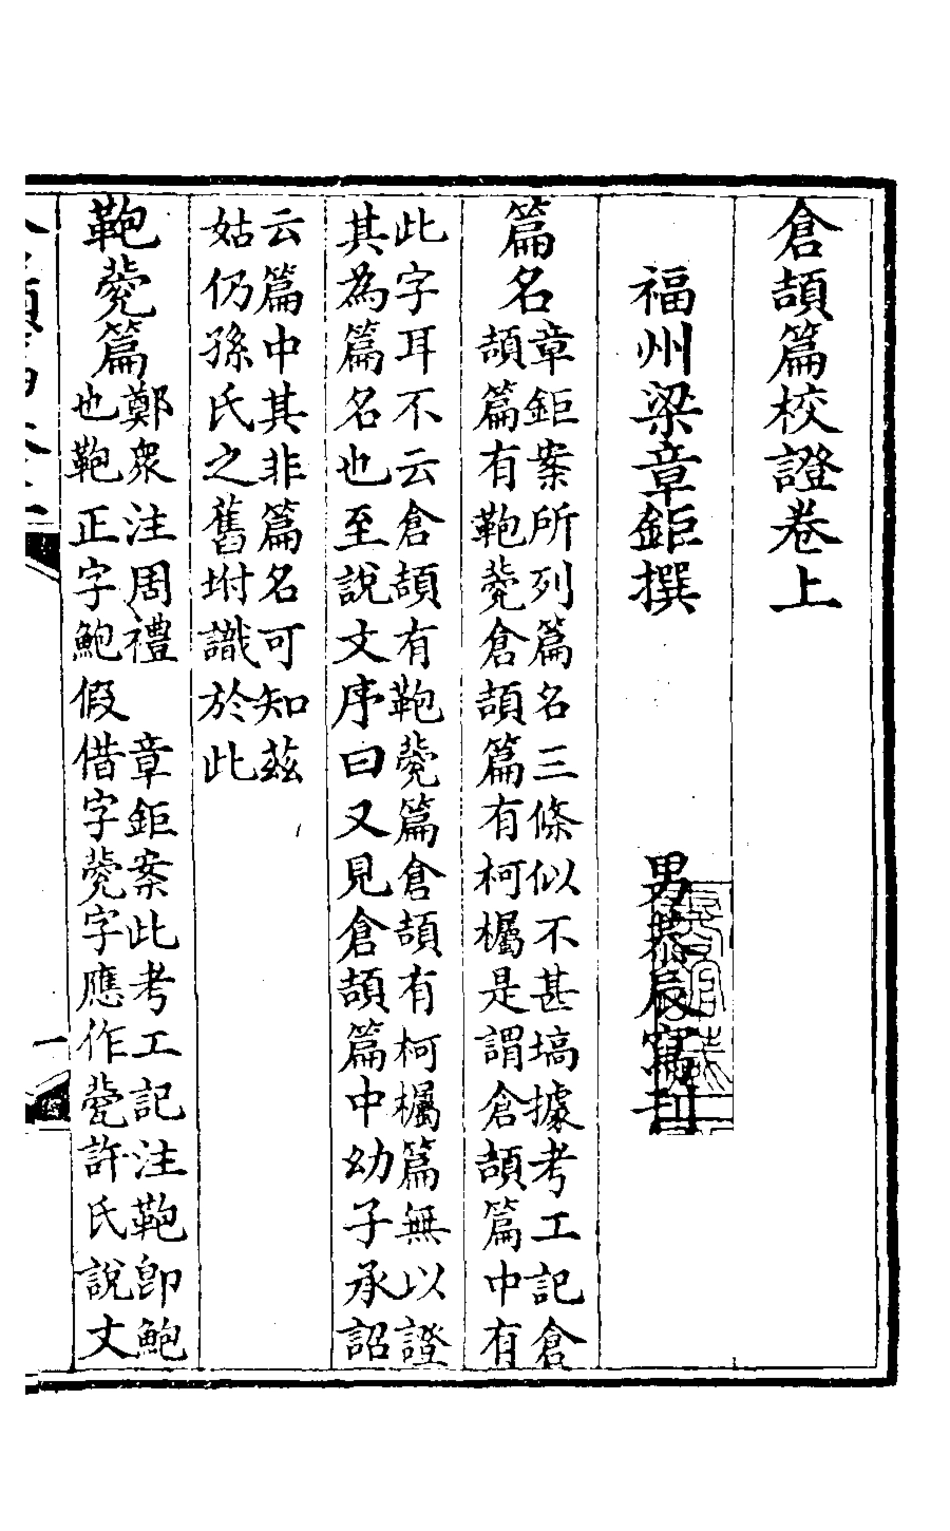 倉頡篇校證卷上
福州梁章鉅撰 男恭辰寫刊
篇名
章鉅案所列篇名三條似不甚塙據考工記倉
頡篇有鞄㼱倉頡篇有柯欘是謂倉頡篇中有
此字耳不云倉頡有鞄㼱篇倉頡有柯欘篇無以證
其為篇名也至說文序曰又見倉頡篇中幼子承詔
云篇中其非篇名可知茲
姑仍孫氏之舊坿識於此
鞄㼱篇
鄭衆注周禮 章鉅案此考工記注鞄卽鮑
也鞄正字鮑假借字㼱字應作㼱許氏說文
一